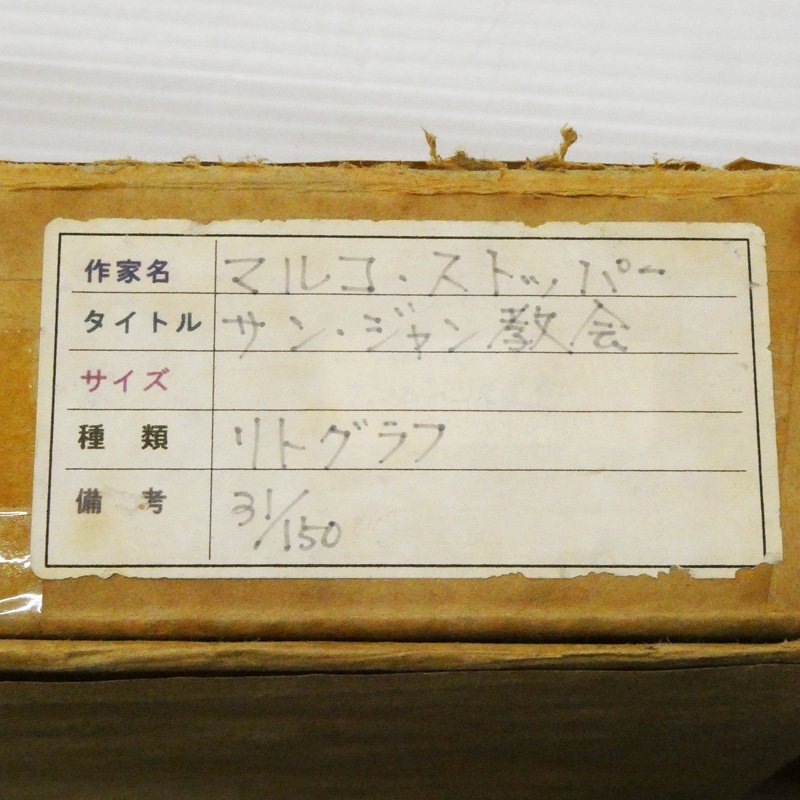 作家名 マルコ・ストッパー
タイトル サン・ジャン教会
サイズ
種類 リトグラフ
備考 31/150